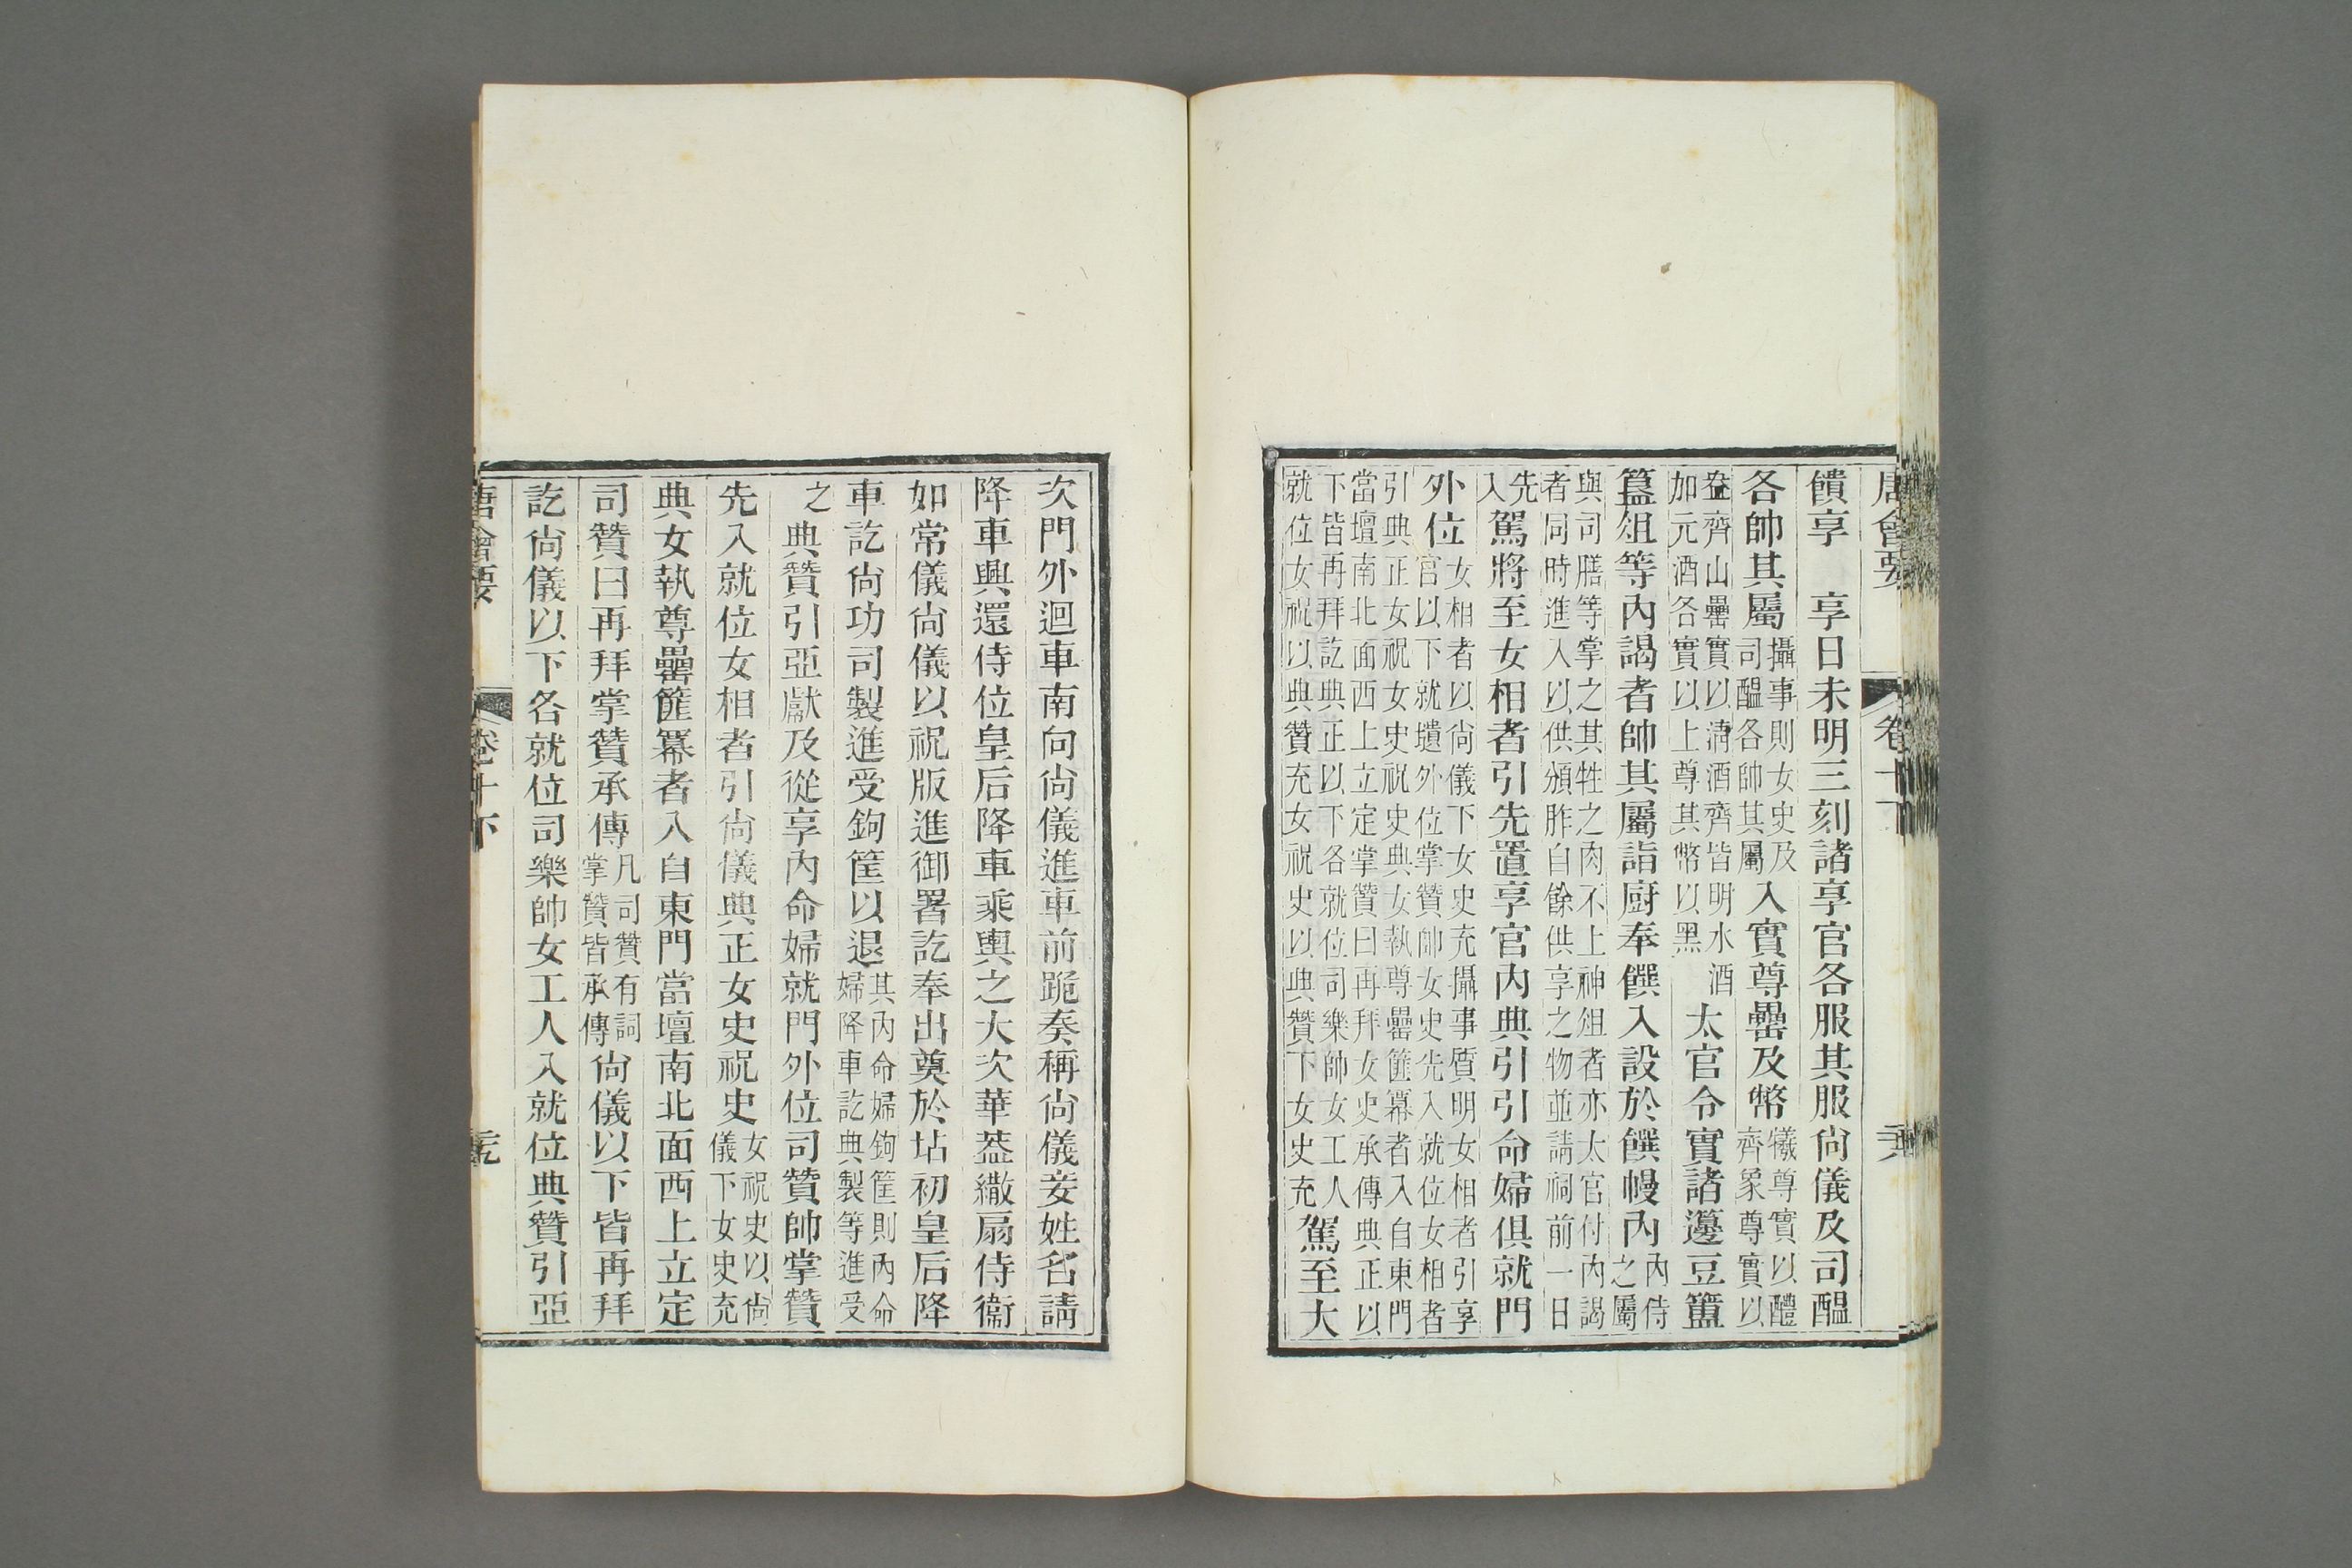 唐會要
卷十下
饋享　享日未明三刻諸享官各服其服尚儀及司醞
各帥其屬攝事則女史及司醞各帥其屬入實尊罍及幣犧尊實以醴齊象尊實以
盎齊山罍實以淸酒齊皆明水酒加元酒各實以上尊其幣以黑太官令實諸籩豆簠
簋俎等內謁者帥其屬詣廚奉饌入設於饌幔內內侍之屬
與司膳等掌之其牲之肉不上神俎者亦太官付內謁者同時進入以供頒胙自餘供享之物並請祠前一日
先入駕將至女相者引先置享官內典引引命婦俱就門
外位女相者以尚儀下女史充攝事質明女相者引享官以下就壝外位掌贊帥女史先入就位女相者
引典正女祝女史祝史典女執尊罍篚冪者入自東門當壇南北面西上立定掌贊曰再拜女史承傳典正以
下皆再拜訖典正以下各就位司樂帥女工人就位女祝以典贊充女祝史以典贊下女史充駕至大
次門外迴車南向尚儀進車前跪奏稱尚儀妾姓名請
降車興還侍位皇后降車乘輿之大次華蓋繖扇侍衞
如常儀尚儀以祝版進御署訖奉出奠於坫初皇后降
車訖尚功司製進受鉤筐以退其內命婦鉤筐則內命婦降車訖典製等進受
之典贊引亞獻及從享內命婦就門外位司贊帥掌贊
先入就位女相者引尚儀典正女史祝史女祝史以尚儀下女史充
典女執尊罍篚冪者入自東門當壇南北面西上立定
司贊曰再拜掌贊承傳凡司贊有詞掌贊皆承傳尚儀以下皆再拜
訖尚儀以下各就位司樂帥女工人入就位典贊引亞
唐會要
卷十下